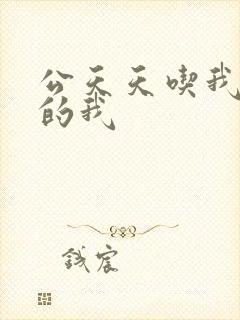 公天天喫我
的我
钱宸